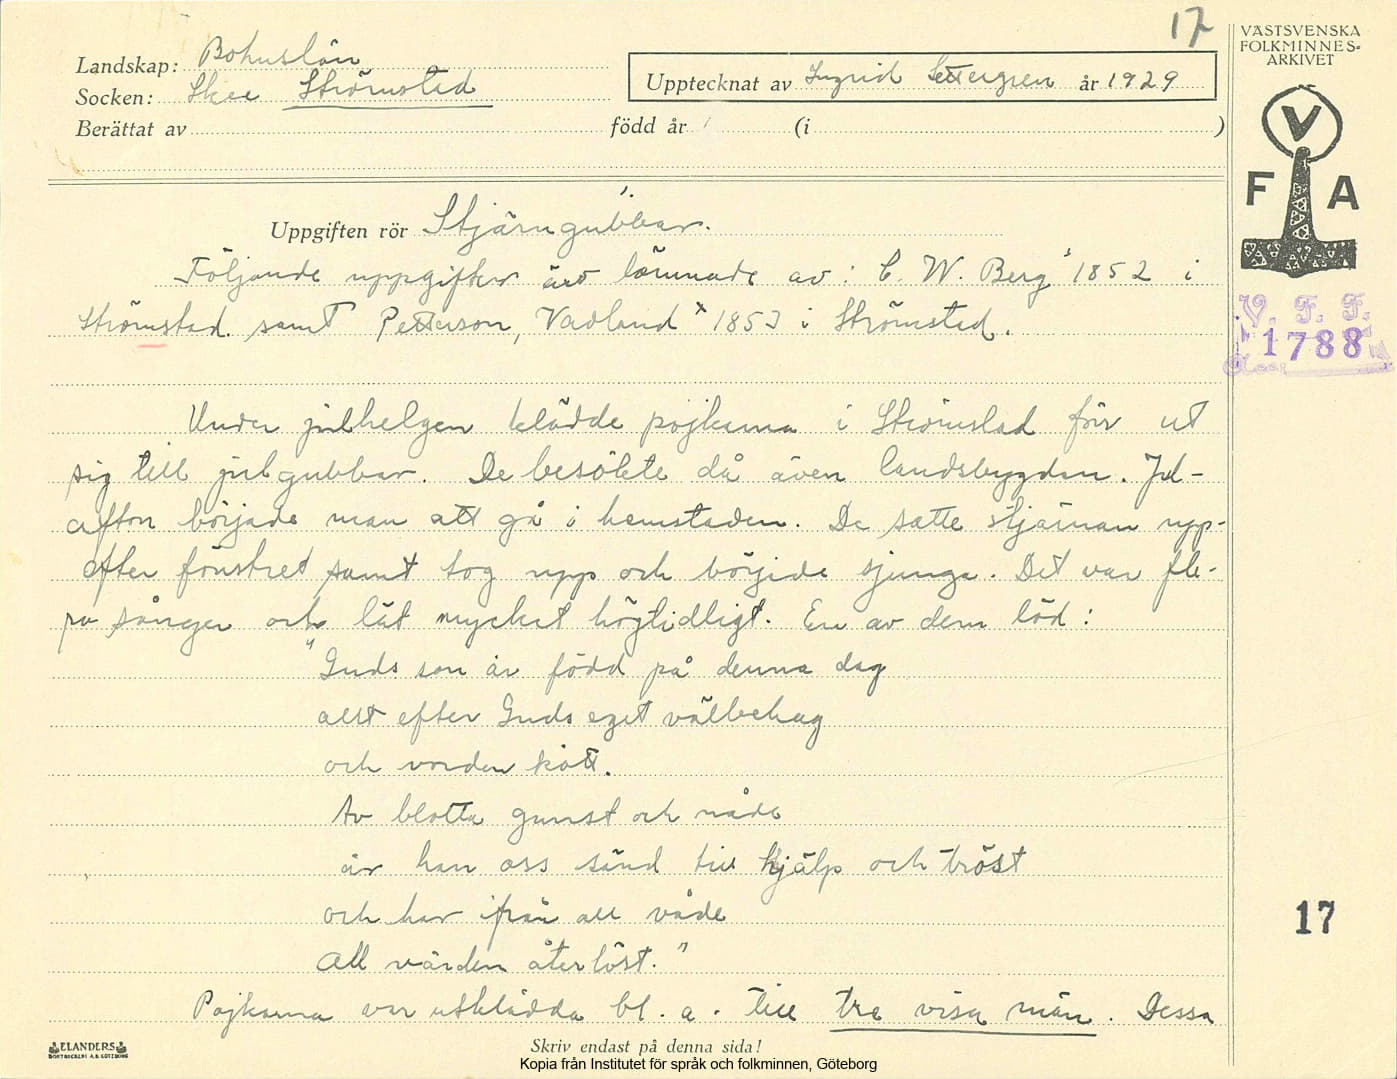 17
VÄSTSVENSKA
FOLKMINNES-
ARKIVET
Landskap: Bohuslän
Socken: Skee Strömstad
Upptecknat av Ingrid Settergren år 1929
Berättat av född år (i )
V
F A
Uppgiften rör Stjärngubbar.
Följande uppgifter äro lämnade av: C. W. Berg * 1852 i
Strömstad samt Petterson, Vadland * 1853 i Strömstad.
V. F. F.
1788
Under julhelgen klädde pojkarna i Strömstad förr ut
sig till julgubbar. De besökte då även landsbygden. Jul-
afton började man att gå i hemstaden. De satte stjärnan upp-
efter fönstret samt tog upp och började sjunga. Det var fle-
ra sånger och lät mycket högtidligt. En av dem löd:
"Guds son är född på denna dag
allt efter Guds eget välbehag
och vorden kött.
Av blotta gunst och nåde
är han oss sänd till hjälp och tröst
och har ifrån all våde
All världen återlöst."
17
Pojkarna var utklädda bl. a. till tre vise män. Dessa
ELANDERS
BOKTRYCKERI A.B. GÖTEBORG
Skriv endast på denna sida!
Kopia från Institutet för språk och folkminnen, Göteborg